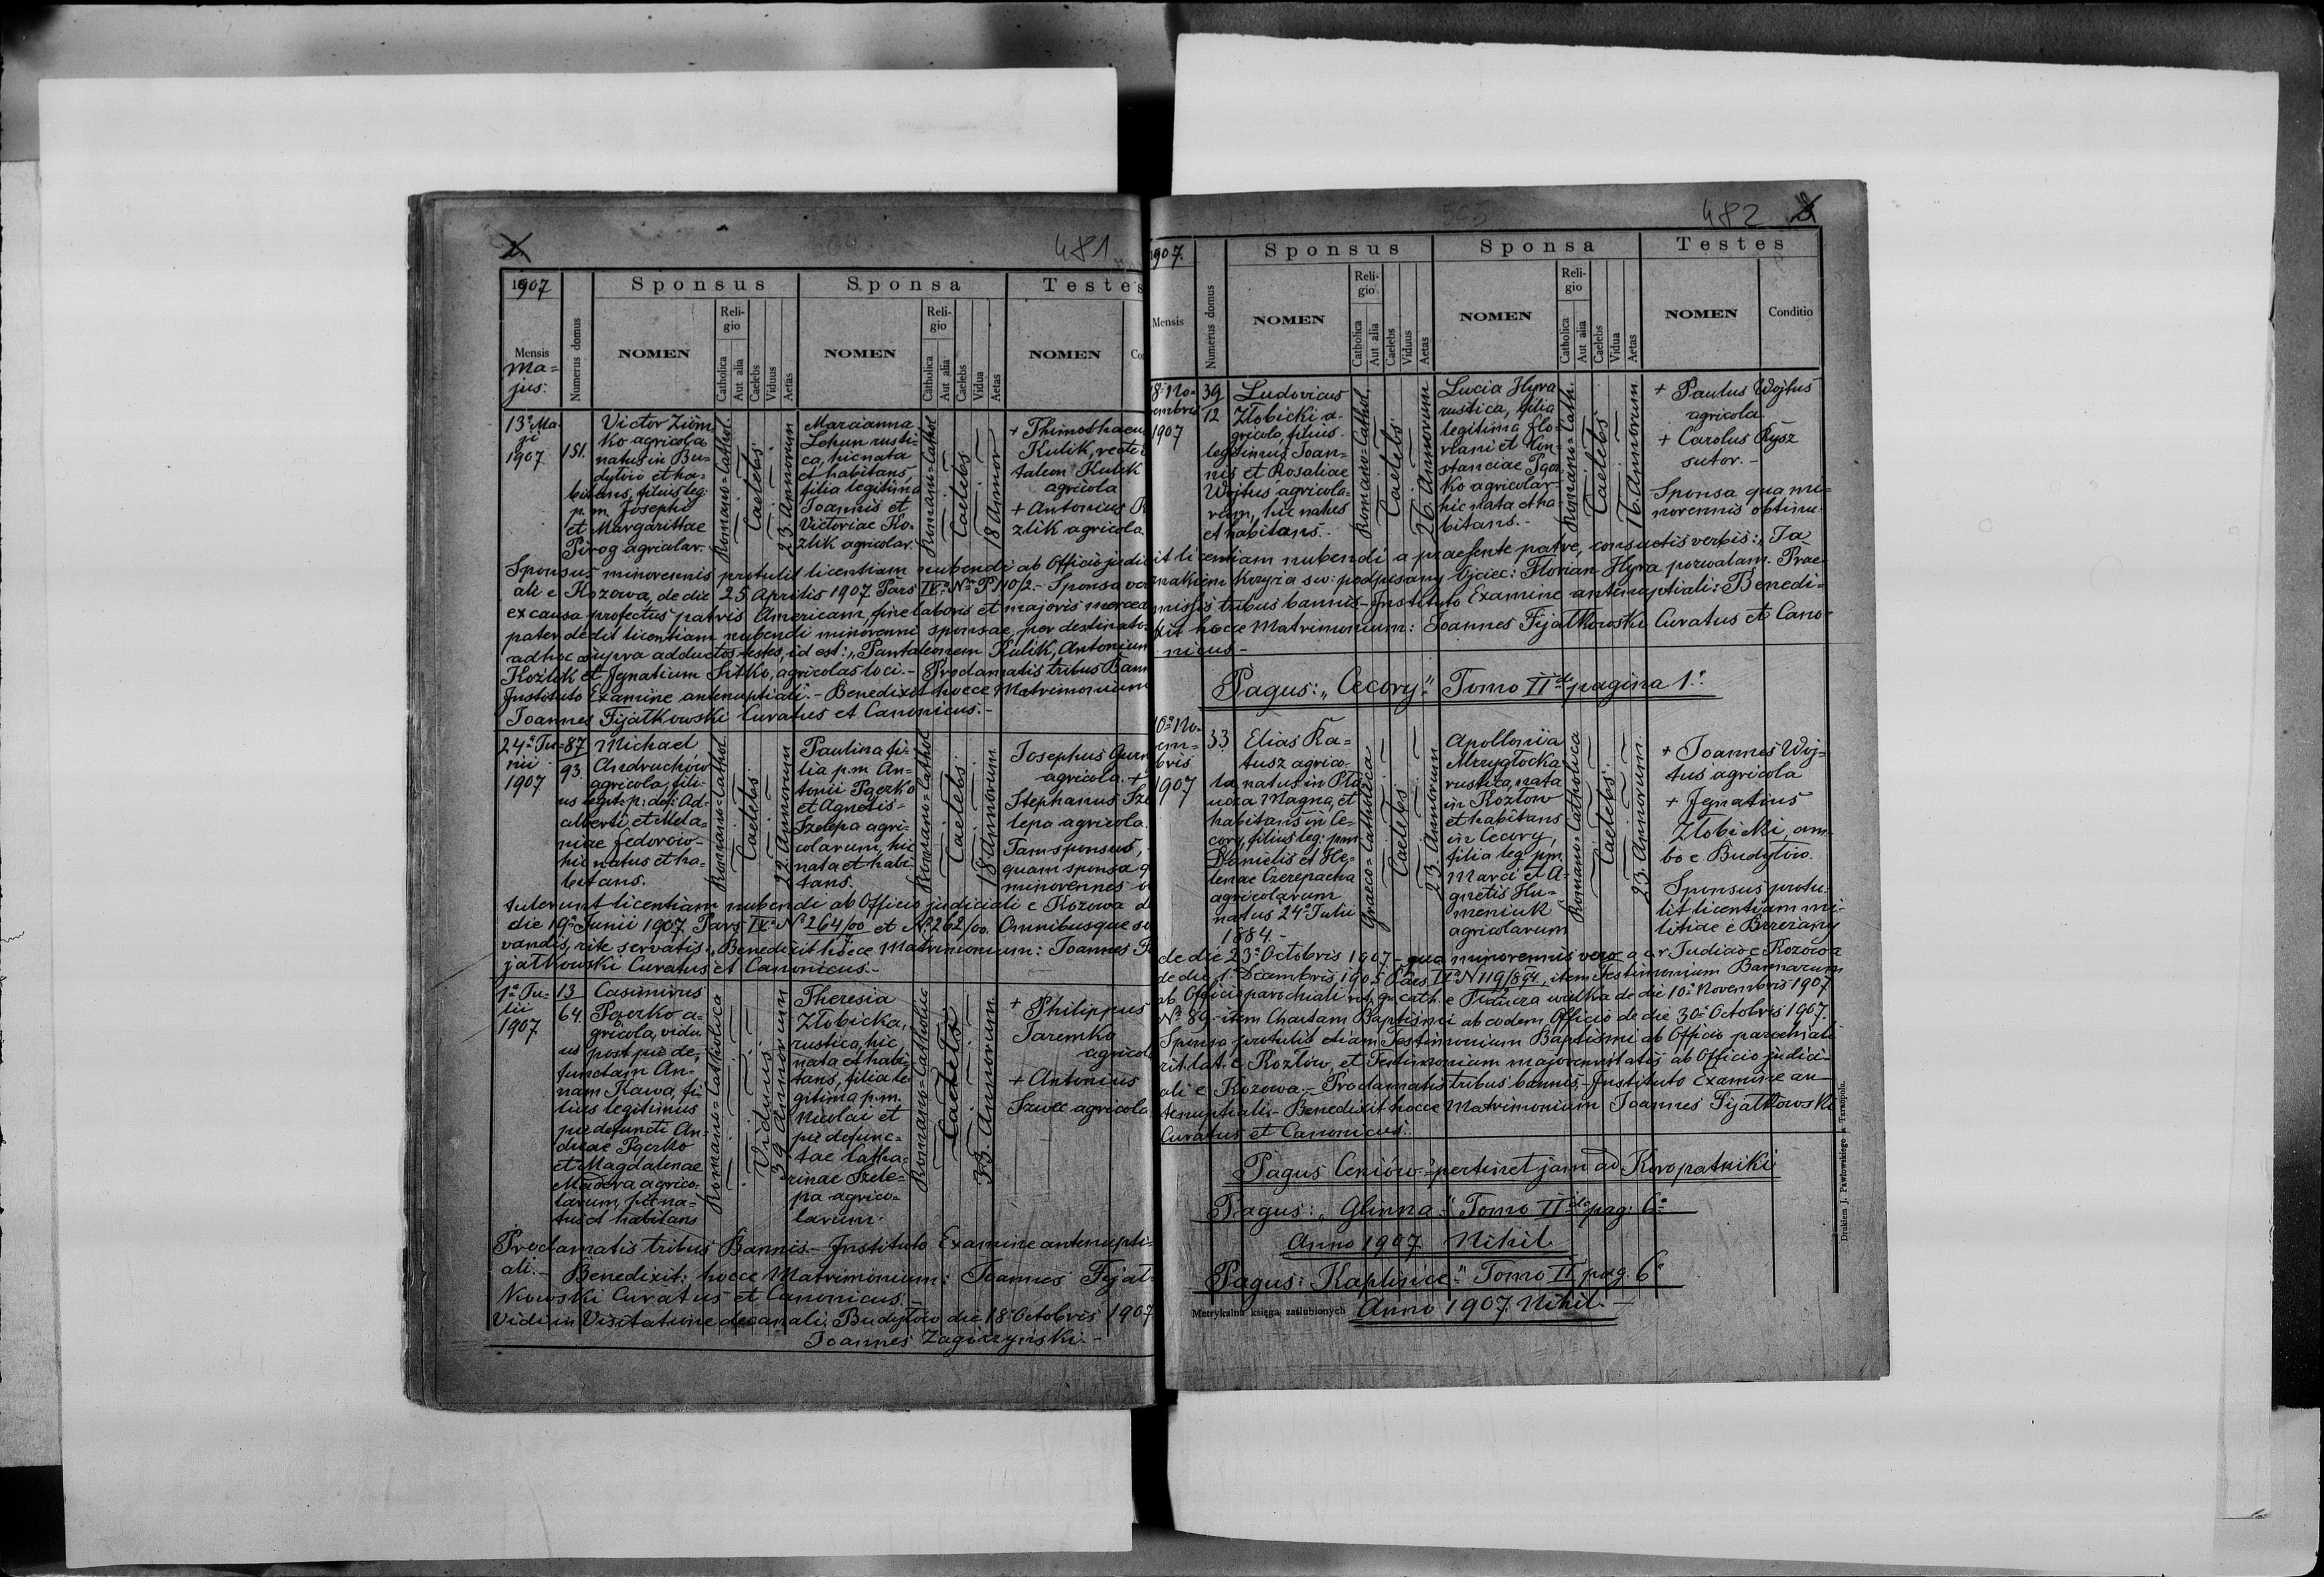 481
1907
Sponsus
Sponsa
Testes
Mensis
Majus:
Numerus domus
NOMEN
Religio
Catholica
Aut alia
Caelebs
Viduus
Aetas
NOMEN
Religio
Catholica
Aut alia
Caelebs
Vidua
Aetas
NOMEN
13ª Ma-
ji
1907
151.
Victor Ziom
ko agricola
natus in Bu-
dyłów et ha-
bitans, filius leg:
p.m. Josephi
et Margarittae
Pirog agricolar.
Romano=Cathol.
Caelebs
23. Annorum
Marcianna
Lehun rusti-
ca, hic nata
et habitans,
filia legitima
Joannis et
Victoriae Ko-
zlik agricolar.
Romano=Cathol
Caelebs
18 Annor
+ Thimothaeus
Kulik, recte
taleon Kulik
agricola
+ Antonius K
zlik agricola
Sponsus minorennis protulit licentiam nubendi ab Officio judici
ali e Kozowa, de die 25 Aprilis 1907 Pars IV. Nº P 110/2.- Sponsa
ex causa profectus patris Americam, fine laboris et majoris merced
pater dedit licentiam nubendi minorenni sponsae, per destinato
ad hoc supra adductos testes, id est: "Pantaleonem Kulik, Antonium
Kozlik et Ignatium Sitko, agricolas loci.- Proclamatis tribus Bann
Instituto Examine antenuptiali.- Benedixit hocce Matrimonium
Joannes Fijałkowski Curatus et Canonicus.-
24ª Ju-
nii
1907
87
93.
Michael
Andruchów
agricola, fili-
us legit: p: def: Ad-
alberti et Mela-
niae Fedorów-
hic natus et ha-
bitans.
Romano=Cathol
Caelebs
22 Annorum
Paulina fi-
lia p.m. An-
tonii Pączko
et Agnetis
Szelepa agri-
colarum, hic
nata et habi-
tans.
Romano=Cathol
Caelebs
18 Annorum
Josephus
agricola. +
Stephanus Sze
lepa agricola.
Tam sponsus,
quam sponsa
minorennes
tulerunt licentiam nubendi ab Officio judiciali e Kozowa
die 19ª Junii 1907 Pars IV. Nº 264/00 et Nº 262/00. Omnibusque
vandis, rite servatis.- Benedixit hocce Matrimonium: Joannes Fi
jałkowski Curatus et Canonicus.-
1ª Ju-
lii
1907
13
64.
Casimirus
Pączko a-
gricola, vidu
us post pie de-
functam An-
nam Kawa, fi-
lius legitimus
pie defuncti An-
dreae Pączko
et Magdalenae
Madera agrico-
larum, hic na-
tus et habitans
Romano=Catholica
Viduus
39 Annorum
Theresia
Złobicka,
rustica, hic
nata et habi
tans, filia le
gitima p.m.
Nicolai et
pie defunc-
tae Catha-
rinae Szele-
pa agrico-
larum.
Romano=Catholic
Caelebs
33. Annorum
+ Philippus
Jaremko
agricol
+ Antonius
Szwec agricola
Proclamatis tribus Bannis.- Instituto Examine antenupti-
ali.- Benedixit: hocce Matrimonium: Joannes Fijał-
kowski Curatus et Canonicus.-
Vidi in Visitatione decanali. Budyłów die 18 Octobris 1907
Joannes Zagórzyński.-
482
1907.
Sponsus
Sponsa
Testes
Mensis
Numerus domus
NOMEN
Religio
Catholica
Aut alia
Caelebs
Viduus
Aetas
NOMEN
Religio
Catholica
Aut alia
Caelebs
Vidua
Aetas
NOMEN
Conditio
8ª No-
vembris
1907
39
12
Ludovicus
Złobicki a-
gricola, filius
legitimus Joan-
nis et Rosaliae
Wojtus agricola-
rum, hic natus
et habitans.
Romano=Cathol.
Caelebs
26. Annorum
Lucia Hyra
rustica, filia
legitima Flo-
riani et Kon-
stanciae Pącz
ko agricolar-
hic nata et ha-
bitans.-
Romano=Cath.
Caelebs
16. Annorum.
+ Paulus Wojtus
agricola
+ Carolus Rysz
sutor.-
Sponsa qua mi-
norennis obtinu-
it licentiam nubendi a praesente patre, consuetis verbis: "Ja
znakiem krzyża św: podpisany Ojciec: Florian Hyra pozwalam. Prae-
missis tribus bannis.- Instituto Examine antenuptiali: Benedi-
xit hocce Matrimonium: Joannes Fijałkowski Curatus et Cano-
nicus-
Pagus: "Cecory". Tomo II pagina 1ª
10ª No-
vem-
bris
1907
33
Elias Ka-
tusz agrico-
la, natus in Pla
ucza Magna, et
habitans in Ce-
cory, filius leg: p.m.
Danielis et He-
lenae Czerepacha
agricolarum
natus 24ª Julii
1884.-
Graeco=Catholica
Caelebs
23. Annorum
Apollonia
Mrzygłocka
rustica, nata
in Kozłów
et habitans
in Cecory,
filia leg: p.m.
Marci et A-
gnetis Hu-
meniuk
agricolarum
Romano=Catholica
Caelebs
23. Annorum.
+ Joannes Woj-
tus agricola
+ Ignatius
Złobicki, am-
bo e Budyłów.
Sponsus protu-
lit licentiam mi-
litiae e Brzeżany
de die 23ª Octobris 1907 - qua minorennis vero a c.r Judicio e Kozowa
de die 1ª Decembris 1905 Pars IV. N 119/894, item Testimonium Bannorum
ab Officio parochiali rit. gr. cath. e Płaucza wielka de die 10ª Novembris 1907
Nº 89- item Chartam Baptismi ab eodem Officio de die 30ª Octobris 1907.
Sponsa protulit etiam Testimonium Baptismi ab Officio parochiali
rit. lat. e Kozłów, et Testimonium majorennitatis ab Officio judici-
ali e Kozowa,- Proclamatis tribus bannis,- Instituto Examine an-
tenuptiali- Benedixit hocce Matrimonium Joannes Fijałkowski
Curatus et Canonicus.
Pagus Ceniów- pertinet jam ad Koropatniki
Pagus: "Glinna". Tomo II pag: 6ª
Anno 1907 Nihil
Pagus: Kaplińce". Tomo II pag. 6ª
Metrykalna księga zaślubionych
Anno 1907 Nihil.-
Drukiem J. Pawłowskiego w Tarnopolu.